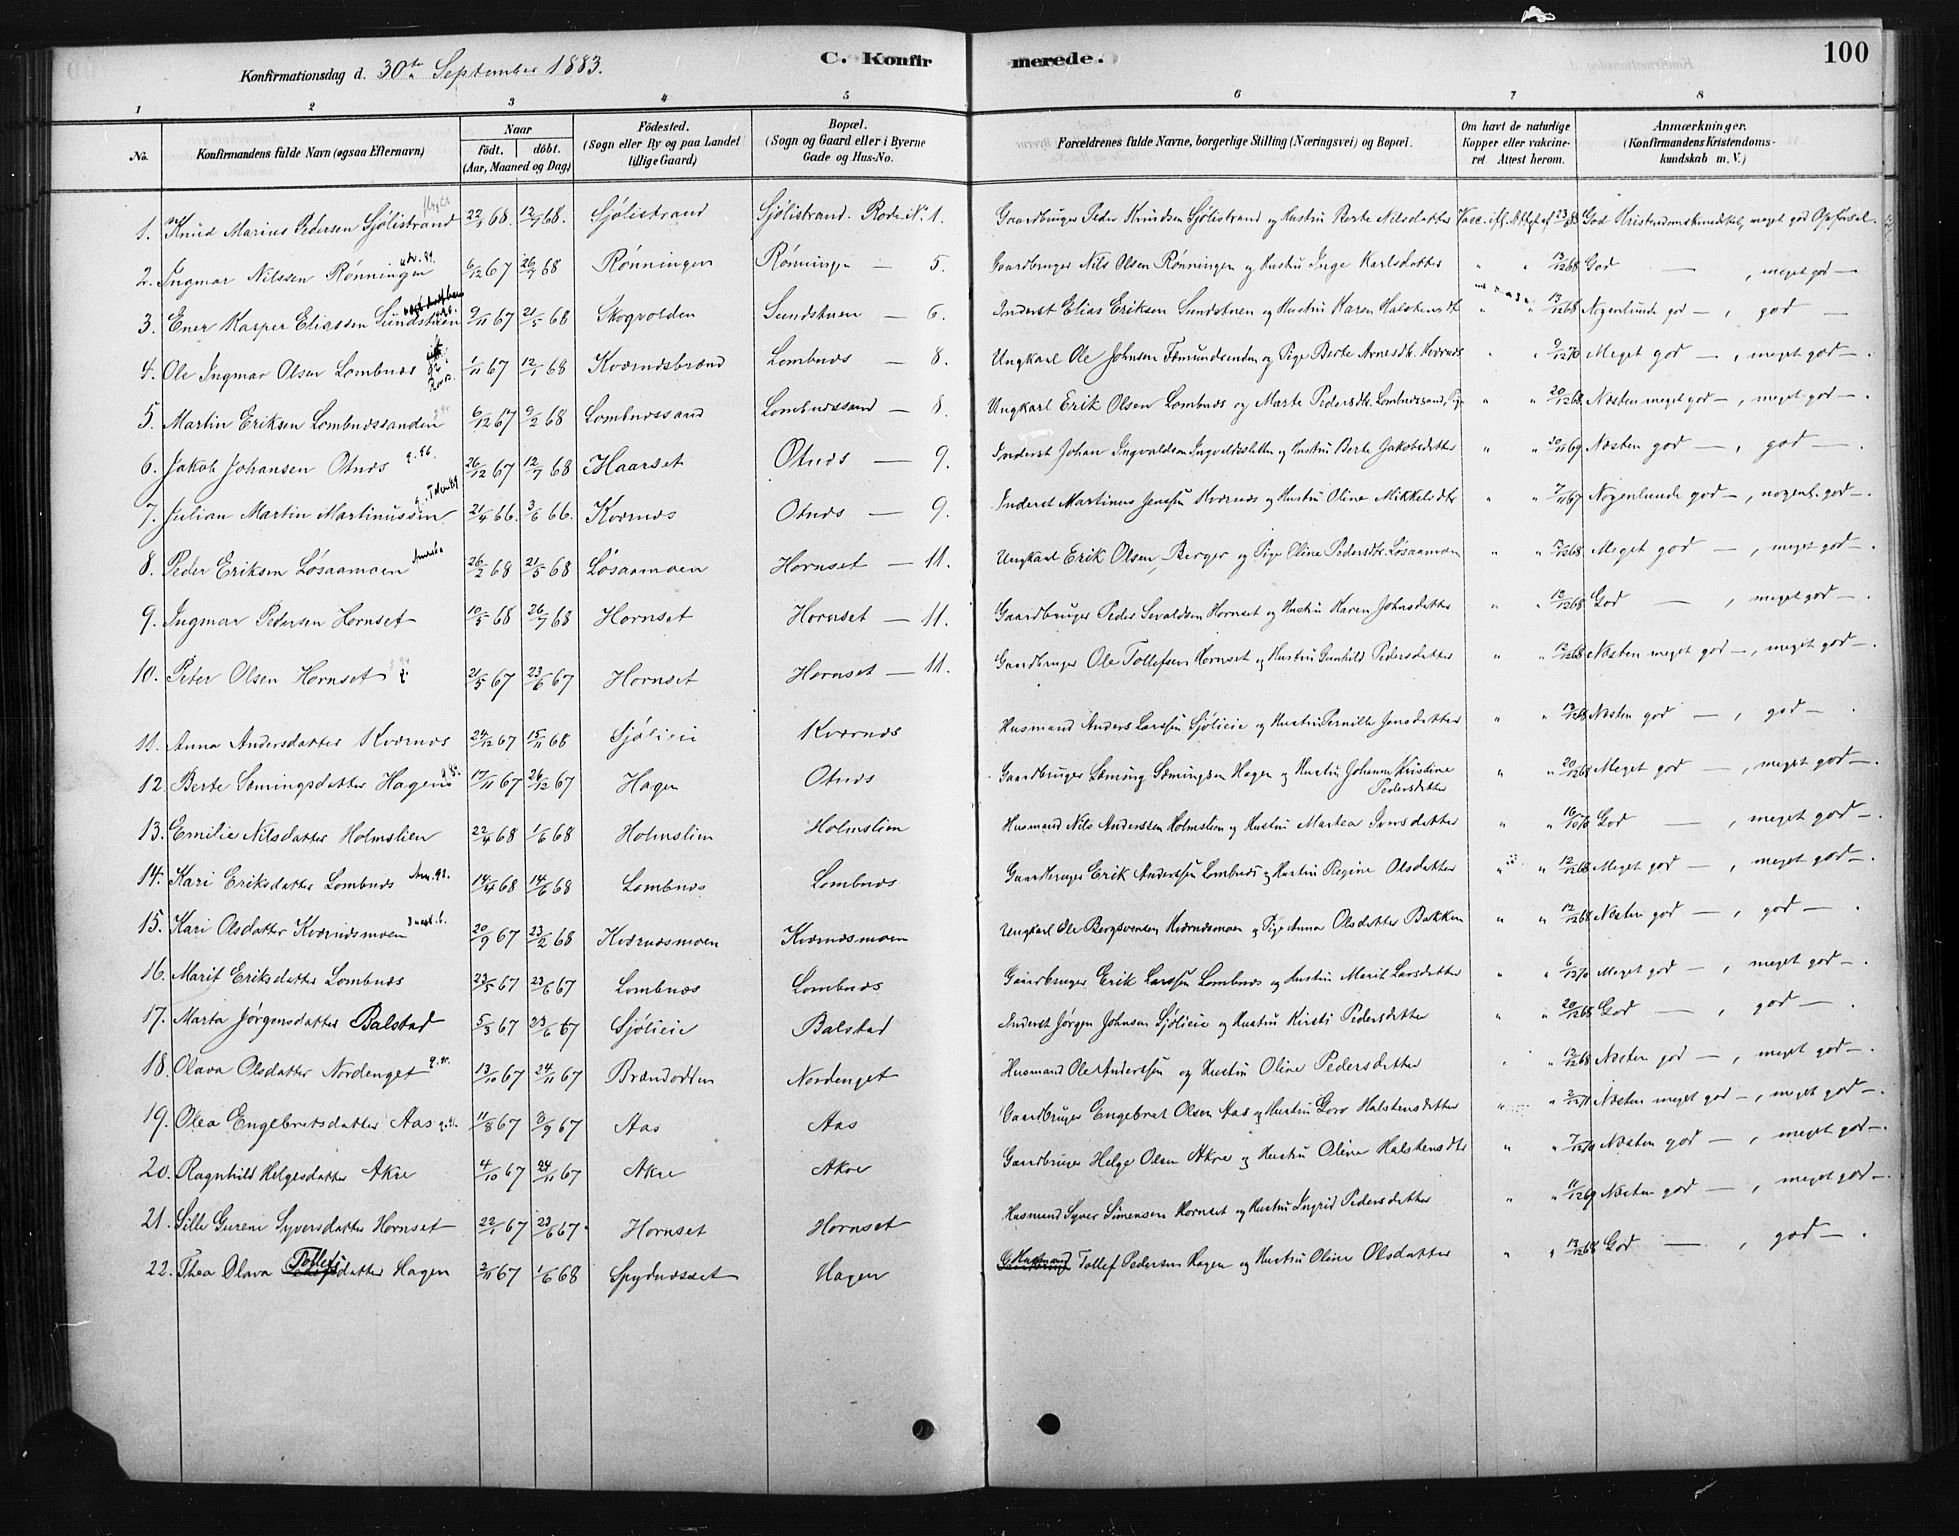 Konfirmationsdag d. 30te September 1883.
C. Konfirmerede.
100
1 2 3 4 5 6 7 8
No.
Konfirmandens fulde Navn (ogsaa Efternavn)
Naar
födt, döbt.
(Aar, Maaned og Dag)
Födested.
(Sogn eller By og paa Landet
tillige Gaard)
Bopæl.
(Sogn og Gaard eller i Byerne
Gade og Hus-No.
Forældrenes fulde Navne, borgerlige Stilling (Næringsvei) og Bopæl.
Om havt de naturlige
Kopper eller vakcine-
ret Attest herom.
Anmærkninger.
(Konfirmandens Kristendoms-
kundskab m. V.)
1. Knud Marius Pedersen Sjölistrand 22/1 68. 12/7 68. Sjölistrand Sjölistrand. Rode No. 1. Gaardbruger Peder Knudsen Sjölistrand og Hustru Berte Nilsdatter God Kristendomskundskab, meget god Opførsel.
2. Ingmar Nilssen Rönningen 6/12 67 26/7 68 Rönningen Rönningen — 5. Gaardbruger Nils Olsen Rönningen og Hustru Inge Karlsdatter " " 13/12 68 God — , meget god —
3. Ener Kasper Eliassen Sundstuen 9/11 67 21/5 68 Skogvolden Sundstuen — 6. Inderst Elias Eriksen Sundstuen og Hustru Karen Halstensdt " " 13/12 68 Nogenlunde god — , god —
4. Ole Ingmar Olsen Lombnæs 1/11 67 12/1 68 Kværnæsbrænd Lombnæs — 8. Ungkarl Ole Johnsen Femundsenden og Pige Berte Arnesdtr. Kværnæs " " 9/12 70 Meget god — , meget god —.
5. Martin Eriksen Lombnæssanden 6/12 67 9/2 68 Lombnæssand Lombnæssand — 8. Ungkarl Erik Olsen Lombnæs og Marte Pedersdtr. Lombnæssand, Pige " " 20/12 68 Næsten meget god — , meget god —.
6. Jakob Johansen Otnæs 26/12 67 12/7 68 Haarset Otnæs — 9. Inderst Johan Ingvaldsen Ingvaldsletten og Hustru Berte Jakobsdatter " " 20/11 69 Næsten god — , god —.
7. Julian Martin Martinussen 21/4 66. 3/6 66. Kværnæs Otnæs — 9. Inderst Martinus Jenssen Kværnæs og Hustru Oline Mikkelsdtr " " 7/11 67 Nogenlunde god — , nogenl. god —.
8. Peder Eriksen Løsaamoen 26/2 68 21/5 68 Løsaamoen Hornset — 11. Ungkarl Erik Olsen Berger og Pige Oline Pedersdtr. Løsaamoen " " Meget god — , meget god —.
9. Ingmar Pedersen Hornset 10/5 68 26/7 68 Hornset Hornset — 11. Gaardbruger Peder Sevaldsen Hornset og Hustru Karen Johnsdatter " " 12/12 68 God — , meget god —.
10. Peter Olsen Hornset 21/5 67 23/6 67 Hornset Hornset — 11. Gaardbruger Ole Tollefsen Hornset og Hustru Gunhild Pedersdatter " " 12/12 68 Næsten meget god — , meget god —.
11. Anna Andersdatter Kværnæs 24/12 67 15/11 68 Sjölieie Kværnæs Husmand Anders Larssen Sjölieie og Hustru Pernille Jonsdatter " " 13/12 68 Næsten god — , god —.
12. Berte Sæmingsdatter Hagen 17/11 67 26/12 67 Hagen Otnæs Gaardbruger Sæming Sæmingsen Hagen og Hustru Johanne Kristine
Pedersdatter " " 20/12 68 Meget god — , meget god —.
13. Emilie Nilsdatter Holmslien 22/4 68 1/6 68 Holmslien Holmslien Husmand Nils Anderssen Holmslien og Hustru Martea Iversdatter " " 16/10 70 God — , meget god —.
14. Kari Eriksdatter Lombnæs 14/4 68 14/6 68 Lombnæs Lombnæs Gaardbruger Erik Anderssen Lombnæs og Hustru Regine Olsdatter " " 12/12 68 Meget god — , meget god —.
15. Kari Olsdatter Kværnæsmoen 20/9 67 23/2 68 Kværnæsmoen Kværnæsmoen Ungkarl Ole Bergsvensen Kværnæsmoen og Pige Anna Olsdatter Bakken " " 12/12 68 Næsten god — , god —.
16. Marit Eriksdatter Lombnæs 23/5 67 23/6 67 Lombnæs Lombnæs Gaardbruger Erik Larssen Lombnæs og Hustru Marit Larsdatter " " Meget god — , meget god —.
17. Marta Jörgensdatter Balstad 5/3 67 23/6 67 Sjölieie Balstad Inderst Jörgen Johnsen Sjölieie og Hustru Kirsti Pedersdatter " " 20/12 68 God — , god —.
18. Olava Olsdatter Nordenget 13/10 67 24/11 67 Brændodden Nordenget Husmand Ole Anderssen og Hustru Oline Pedersdatter " " 12/12 68 Næsten god — , meget god —.
19. Olea Engebretsdatter Aas 11/8 67 3/9 67 Aas Aas Gaardbruger Engebret Olsen Aas og Hustru Goro Halstensdatter " " Næsten meget god — , meget god —.
20. Ragnhild Helgesdatter Akre 4/10 67 24/11 67 Akre Akre Gaardbruger Helge Olsen Akre og Hustru Oline Halstensdtr " " 7/12 70 Næsten god — , meget god —.
21. Sille Gurene Syversdatter Hornset 22/1 67 23/6 67. Hornset Hornset Husmand Syver Simensen Hornset og Hustru Ingrid Pedersdatter " " 11/12 69 Næsten god — , meget god —.
22. Thea Olava Tollefsdatter Hagen 2/11 67 1/6 68 Spydnæsset Hagen Husmand Tollef Pedersen Hagen og Hustru Oline Olsdatter " " 13/12 68 God — , god —.